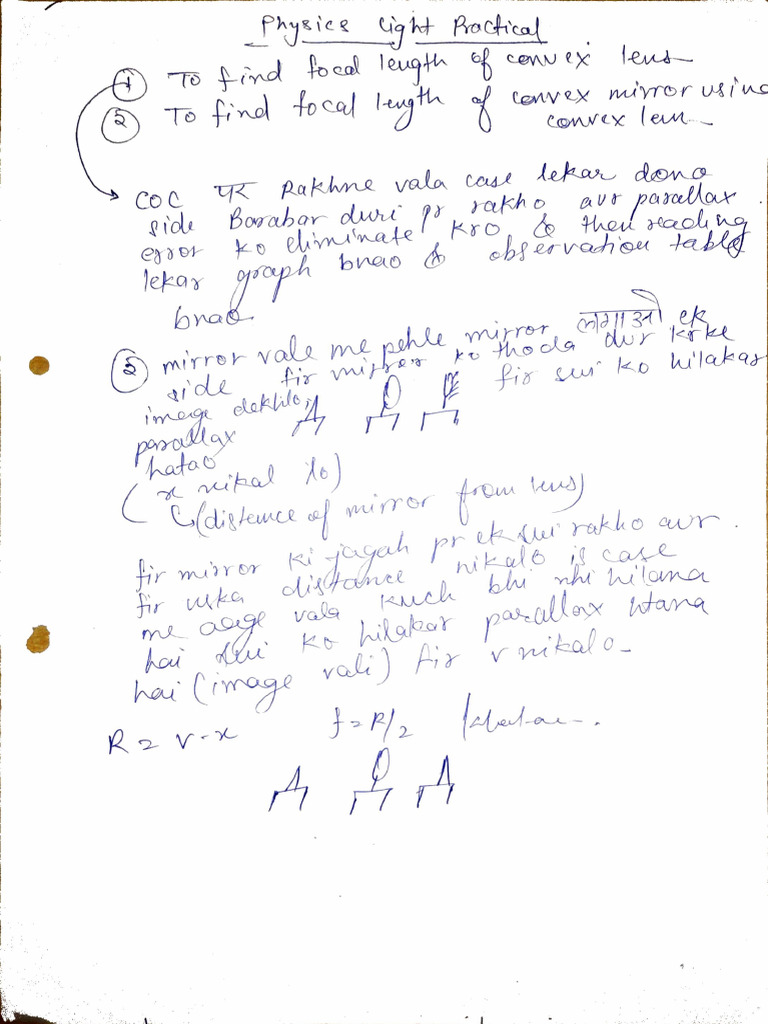 Physics light Practical
① To find focal length of convex lens
② To find focal length of convex mirror using
convex lens
COC पर Rakhne vala case lekar dono
side Barabar duri pr rakho aur parallax
error ko eliminate kro & then reading
lekar graph bnao & observation table
bnao
② mirror vale me pehle mirror लगाओ ek
side fir mirror ko thoda dur krke
image dekhlo, fir sui ko hilakar
parallax
hatao
(x nikal lo)
(distence of mirror from lens)
fir mirror ki jagah pr ek sui rakho aur
fir uska distance nikalo is case
me aage vala kuch bhi nhi hilana
hai sui ko hilakar parallax htana
hai (image vali) fir v nikalo
R = v-x f = R/2